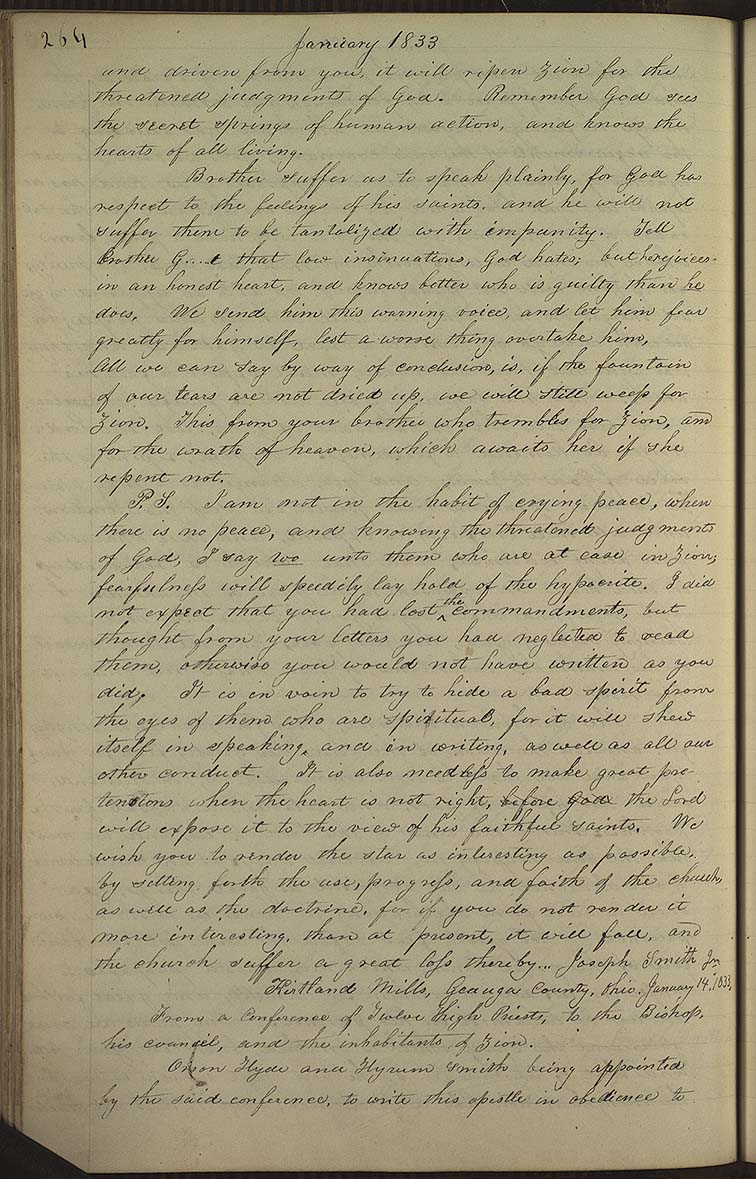 264
January 1833
and driven from you, it will ripen Zion for the
threatened judgments of God. Remember God sees
the secret springs of human action, and knows the
hearts of all living.
Brother suffer us to speak plainly, for God has
respect to the feelings of his saints, and he will not
suffer them to be tantalized with impunity. Tell
brother G....t that low insinuations, God hates; but he rejoices
in an honest heart, and knows better who is guilty than he
does. We send him this warning voice, and let him fear
greatly for himself, lest a worse thing overtake him,
All we can say by way of conclusion, is, if the fountain
of our tears are not dried up, we will still weep for
Zion. This from your brother who trembles for Zion, and
for the wrath of heaven, which awaits her if she
repent not.
P. S. I am not in the habit of crying peace, when
there is no peace, and knowing the threatened judgments
of God, I say wo unto them who are at ease in Zion;
fearfulness will speedily lay hold of the hypocrite. I did
not expect that you had lost the commandments, but
thought from your letters you had neglected to read
them, otherwise you would not have written as you
did. It is in vain to try to hide a bad spirit from
the eyes of them who are spiritual, for it will shew
itself in speaking, and in writing, as well as all our
other conduct. It is also needless to make great pre-
tentions when the heart is not right, before God the Lord
will expose it to the view of his faithful saints. We
wish you to render the star as interesting as possible,
by setting forth the use, progress, and faith of the church,
as well as the doctrine, for if you do not render it
more interesting, than at present, it will fall, and
the church suffer a great loss thereby... Joseph Smith Jr.
Kirtland Mills, Geauga County, Ohio. January 14, 1833,
From a Conference of Twelve high Priests, to the Bishop,
his council, and the inhabitants of Zion.
Orson Hyde and Hyrum Smith being appointed
by the said conference, to write this epistle in obedience to